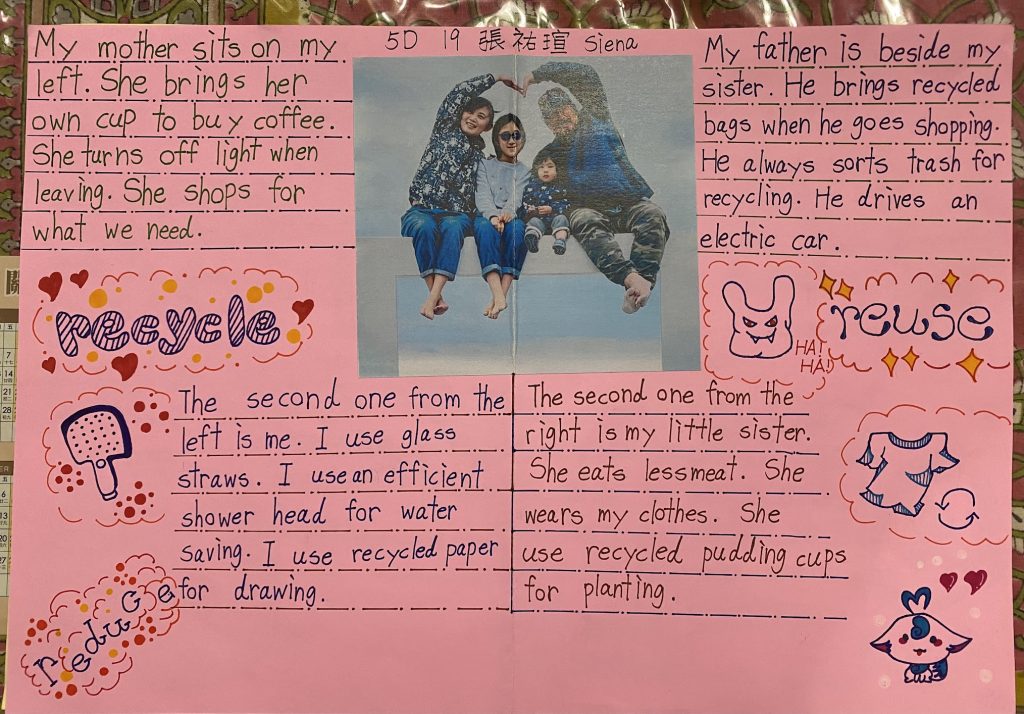 5D 19 張祐瑄 Siena
My mother sits on my
left. She brings her
own cup to buy coffee.
She turns off light when
leaving. She shops for
what we need.
My father is beside my
sister. He brings recycled
bags when he goes shopping.
He always sorts trash for
recycling. He drives an
electric car.
recycle
HA!
HA!
reuse
The second one from the
left is me. I use glass
straws. I use an efficient
shower head for water
saving. I use recycled paper
for drawing.
The second one from the
right is my little sister.
She eats less meat. She
wears my clothes. She
use recycled pudding cups
for planting.
reduce